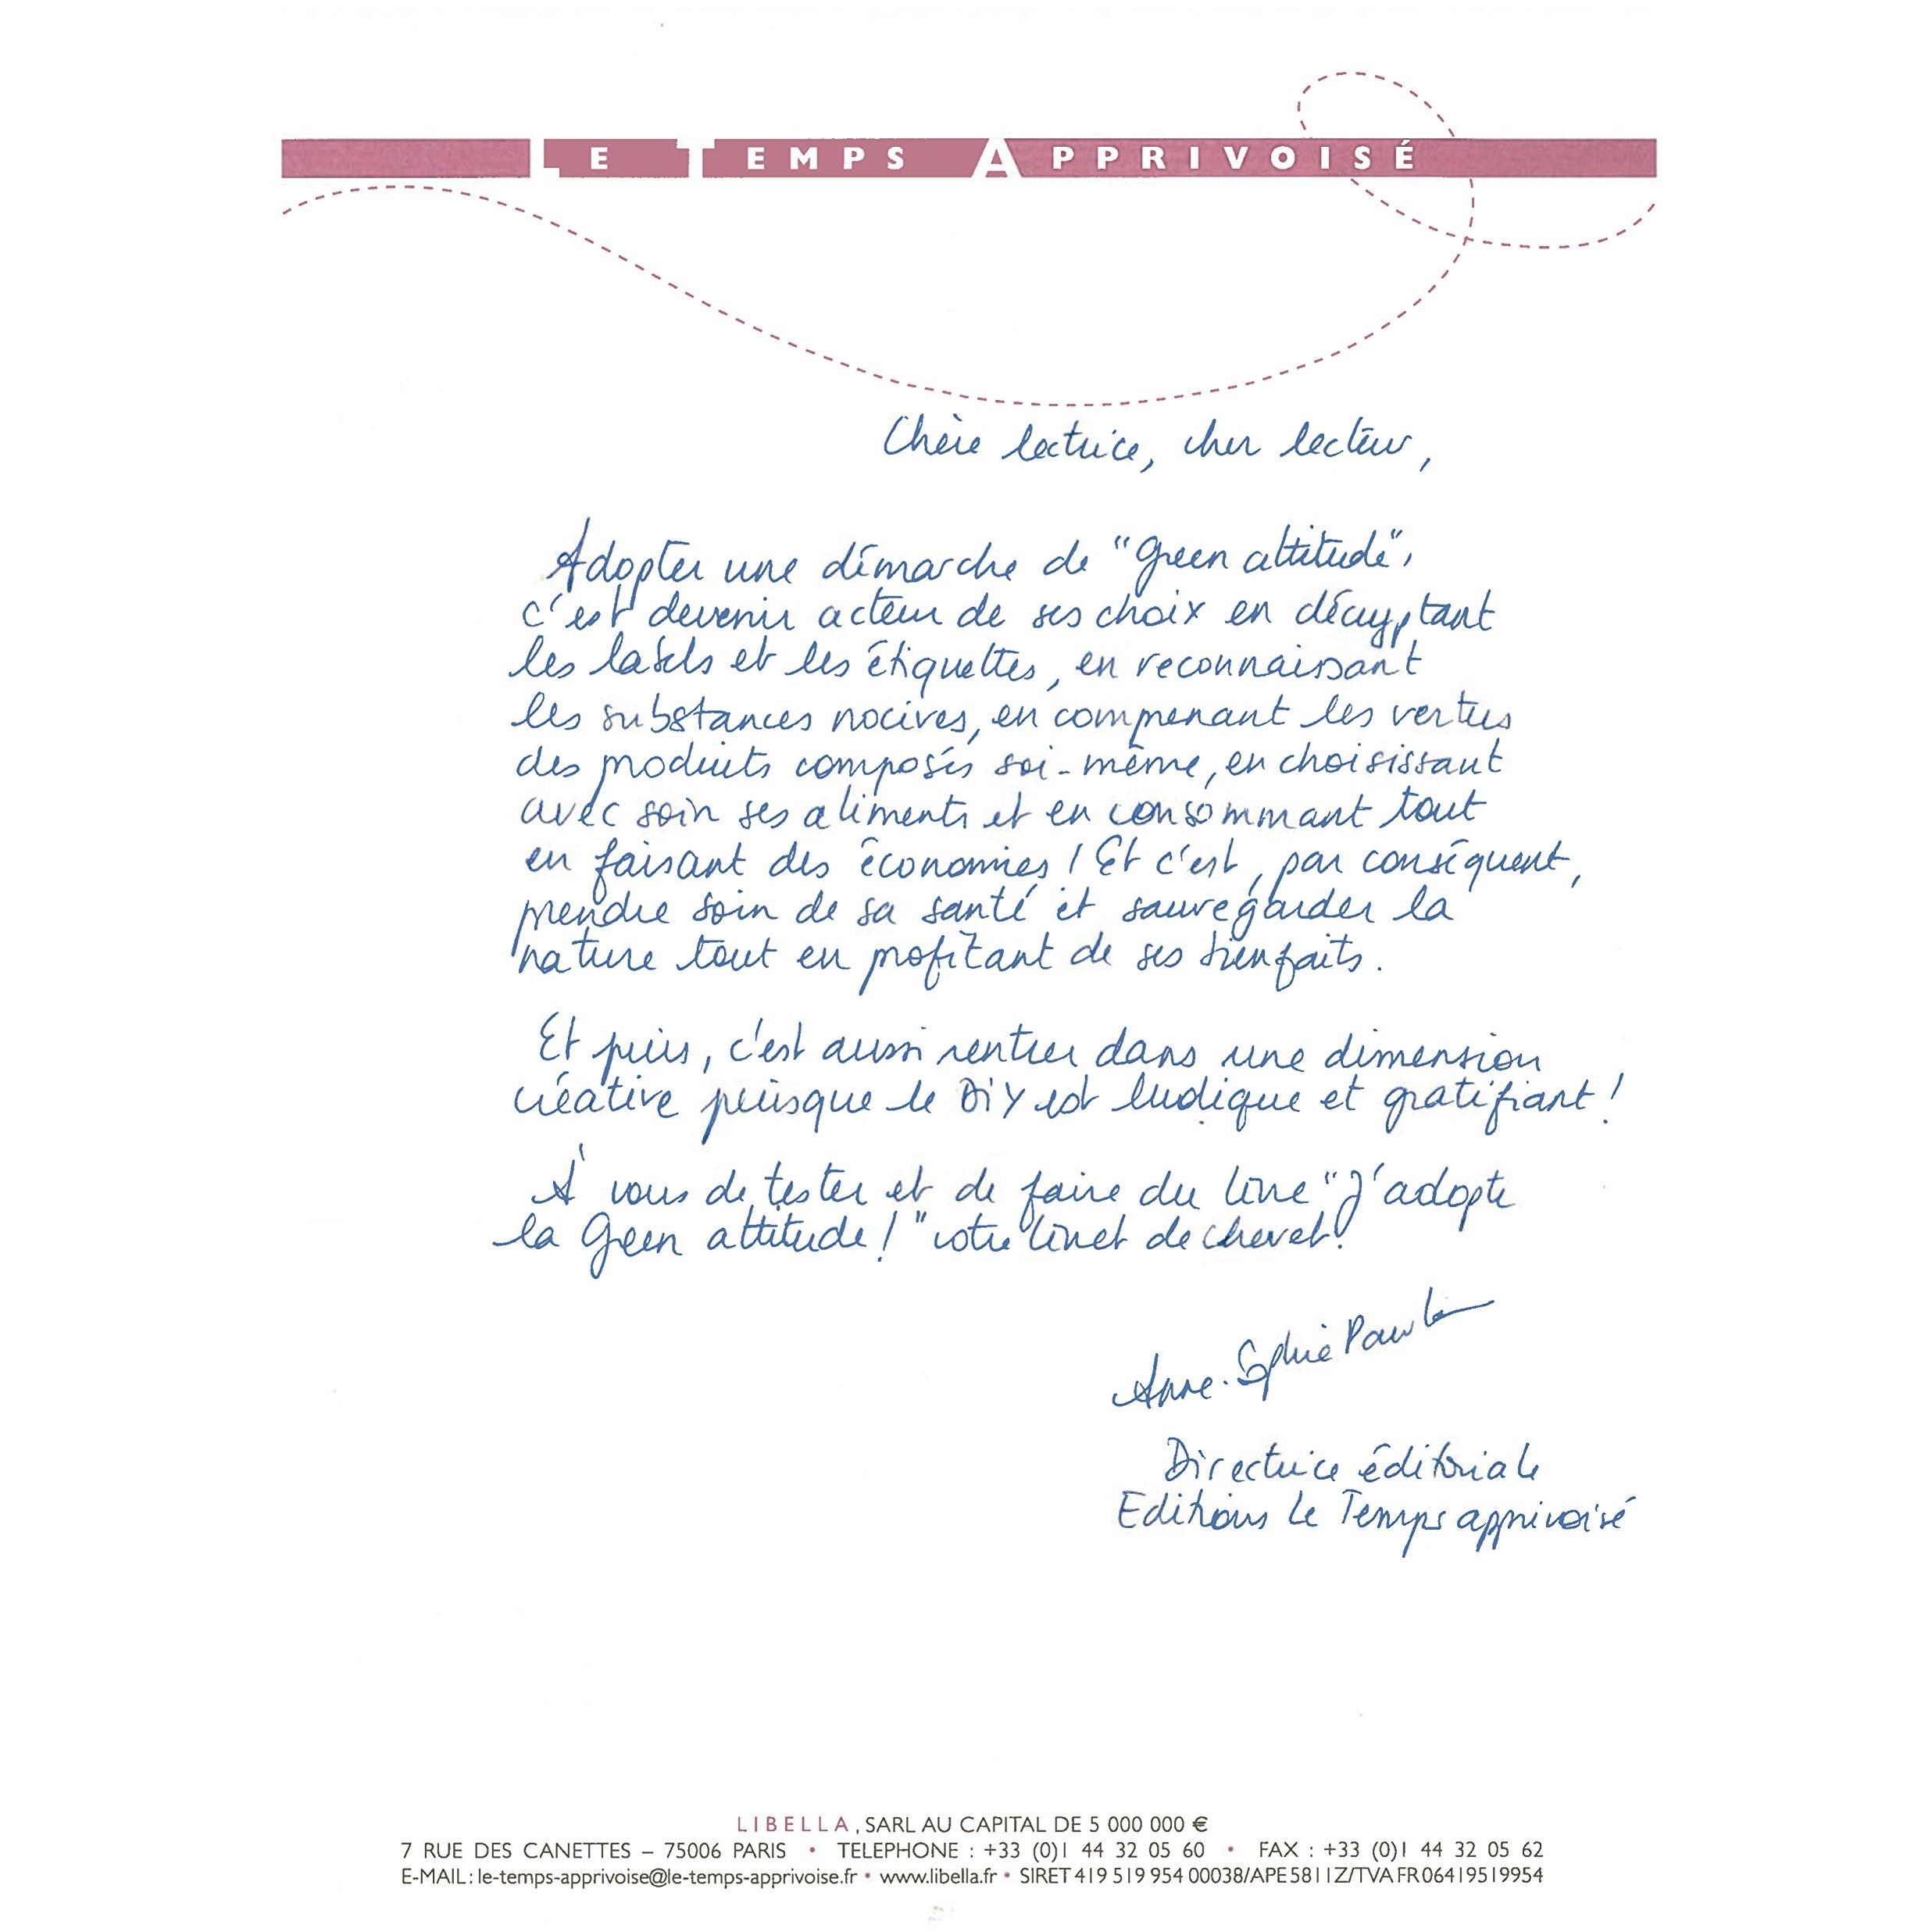 LE TEMPS APPRIVOISÉ
Chère lectrice, cher lecteur,
Adopter une démarche de "Green attitude",
c'est devenir acteur de ses choix en décryptant
les labels et les étiquettes, en reconnaissant
les substances nocives, en comprenant les vertus
des produits composés soi-même, en choisissant
avec soin ses aliments et en consommant tout
en faisant des économies ! Et c'est, par conséquent,
prendre soin de sa santé et sauvegarder la
nature tout en profitant de ses bienfaits.
Et puis, c'est aussi rentrer dans une dimension
créative puisque le DiY est ludique et gratifiant !
À vous de tester et de faire du livre "J'adopte
la Green attitude !" votre livret de chevet.
Anne-Sophie
Directrice éditoriale
Editions Le Temps apprivoisé
LIBELLA, SARL AU CAPITAL DE 5 000 000 €
7 RUE DES CANETTES – 75006 PARIS • TELEPHONE : +33 (0)1 44 32 05 60 • FAX : +33 (0)1 44 32 05 62
E-MAIL : le-temps-apprivoise@le-temps-apprivoise.fr • www.libella.fr • SIRET 419 519 954 00038/APE 5811Z/TVA FR 06419519954